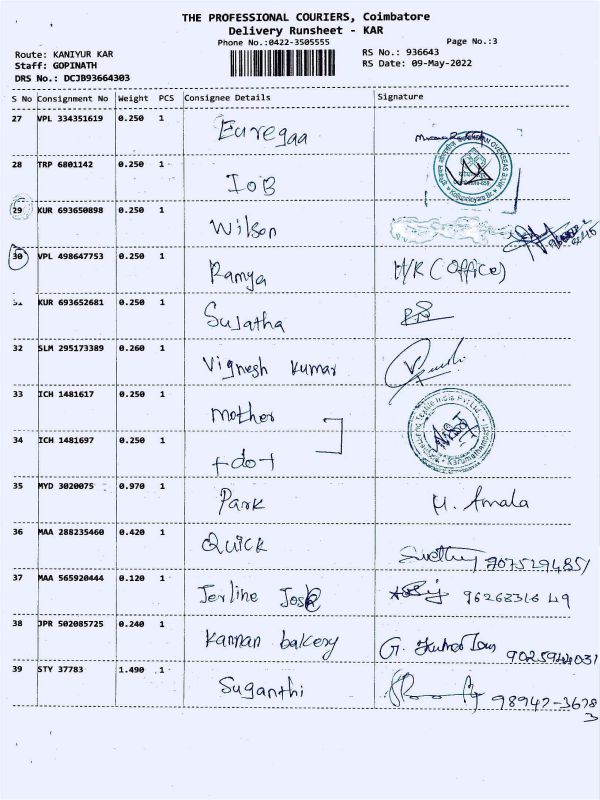 THE PROFESSIONAL COURIERS, Coimbatore
Delivery Runsheet - KAR
Phone No.:0422-3505555 Page No.:3
Route: KANIYUR KAR RS No.: 936643
Staff: GOPINATH RS Date: 09-May-2022
DRS No.: DCJB93664303
S No Consignment No Weight PCS Consignee Details Signature
27 VPL 334351619 0.250 1 Euregaa
28 TRP 6801142 0.250 1 IOB
29 KUR 693650898 0.250 1 Wilson
30 VPL 498647753 0.250 1 Ramya H/R (Office)
KUR 693652681 0.250 1 Sujatha
32 SLM 295173389 0.260 1 Vignesh Kumar
33 ICH 1481617 0.250 1 mother
34 ICH 1481697 0.250 1 +dot
35 MYD 3020075 0.970 1 Park M. Amala
36 MAA 288235460 0.420 1 Quick
37 MAA 565920444 0.120 1 Jerline Jose
38 JPR 502085725 0.240 1 Kannan bakery G.
39 STY 37783 1.490 1 Suganthi